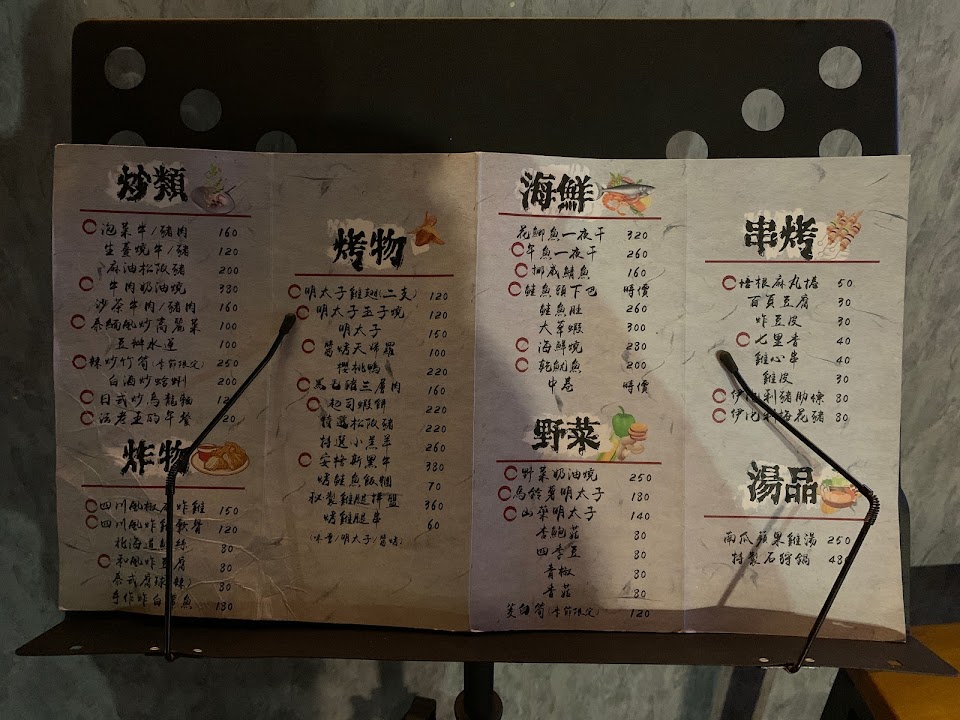 炒類
泡菜牛/豬肉 160
生薑燒牛/豬 120
麻油松阪豬 200
牛肉奶油燒 330
沙茶牛肉/豬肉 160
泰緬風炒高麗菜 100
豆瓣水蓮 100
辣炒竹筍(季節限定) 250
白酒炒蛤蜊 200
日式炒烏龍麵
法老王的午餐
炸物
四川風椒麻炸雞 150
四川風炸雞軟骨 120
北海道 80
和風炸豆腐 80
泰式 80
手作炸白帶魚 180
烤物
明太子雞翅(二支) 120
明太子玉子燒 120
明太子 150
醬烤天婦羅 100
櫻桃鴨 220
黑毛豬三層肉 160
起司蝦餅 220
特選松阪豬 220
特選小羔羊 260
安格斯黑牛 330
烤鮭魚飯糰 70
秘製雞腿拼盤 360
烤雞腿串 60
(味噌/明太子/醬烤)
海鮮
花鯽魚一夜干 320
午魚一夜干 260
挪威鯖魚 160
鮭魚頭下巴 時價
鮭魚肚 260
大草蝦 300
海鮮燒 280
乾魷魚 200
中卷 時價
野菜
野菜奶油燒 250
馬鈴薯明太子 180
山藥明太子 140
杏鮑菇 80
四季豆 80
青椒 80
香菇 80
茭白筍(季節限定) 120
串烤
培根麻丸捲 50
百頁豆腐 30
炸豆皮 30
七里香 40
雞心串 40
雞皮 30
伊比利豬肋條 80
伊比利梅花豬 80
湯品
南瓜蘋果雞湯 250
特製石狩鍋